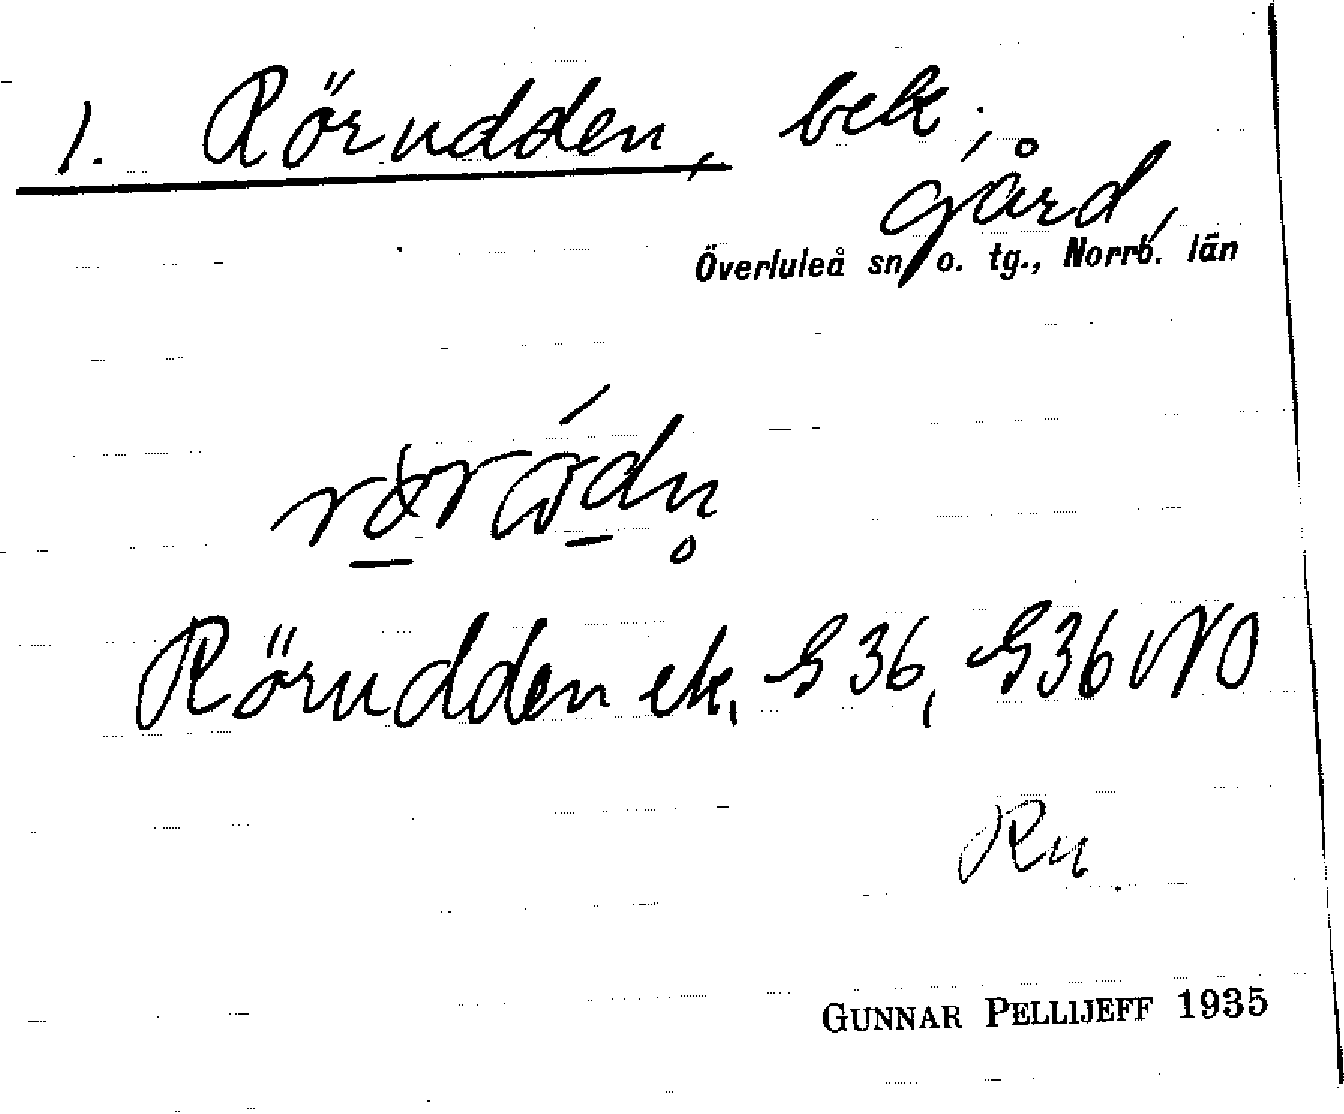 1. Rörudden, bek.,
gård,
Överluleå sn o. tg., Norrb. län
Rörudden ek, G 36, G36 NO
Rn
GUNNAR PELLIJEFF 1935